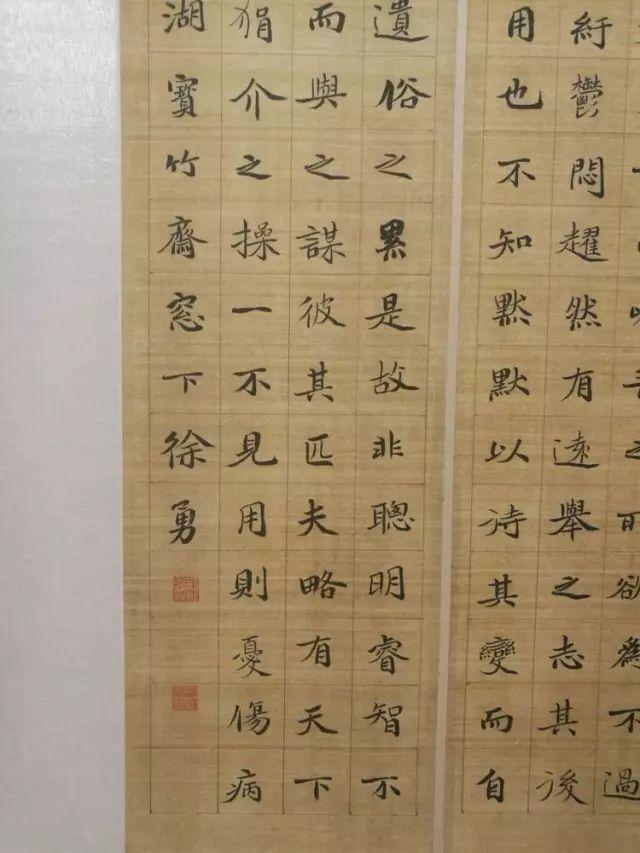 欲為不過
紆鬱悶趯然有遠舉之志其後
用也不知默默以待其變而自
遺俗之累是故非聰明睿智不
而與之謀彼其匹夫略有天下
狷介之操一不見用則憂傷病
湖寶竹齋窓下徐勇